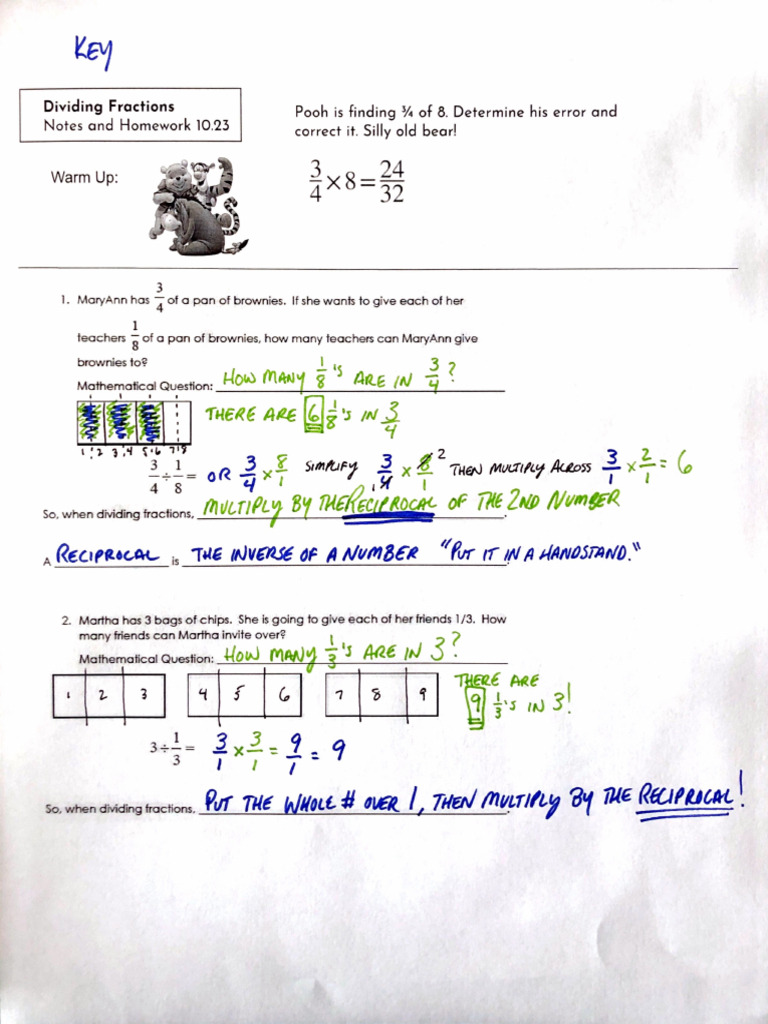 KEY
Dividing Fractions
Notes and Homework 10.23
Pooh is finding ¾ of 8. Determine his error and
correct it. Silly old bear!
Warm Up:
3/4 × 8 = 24/32
1. MaryAnn has 3/4 of a pan of brownies. If she wants to give each of her
teachers 1/8 of a pan of brownies, how many teachers can MaryAnn give
brownies to?
Mathematical Question: HOW MANY 1/8's ARE IN 3/4?
THERE ARE 6 1/8's IN 3/4
1 2 3 4 5 6 7 8
3/4 ÷ 1/8 = OR 3/4 × 8/1 SIMPLIFY 3/4 1 × 8/1 2 THEN MULTIPLY ACROSS 3/1 × 2/1 = 6
So, when dividing fractions, MULTIPLY BY THE RECIPROCAL OF THE 2ND NUMBER
A RECIPROCAL is THE INVERSE OF A NUMBER "PUT IT IN A HANDSTAND."
2. Martha has 3 bags of chips. She is going to give each of her friends 1/3. How
many friends can Martha invite over?
Mathematical Question: HOW MANY 1/3's ARE IN 3?
1 2 3 4 5 6 7 8 9
THERE ARE
9 1/3's IN 3!
3 ÷ 1/3 = 3/1 × 3/1 = 9/1 = 9
So, when dividing fractions, PUT THE WHOLE # OVER 1, THEN MULTIPLY BY THE RECIPROCAL!